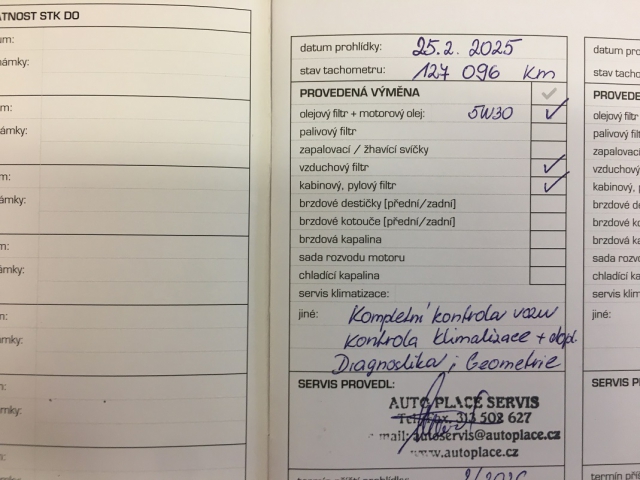 ATNOST STK DO
um:
námky:
um:
námky:
m:
ámky:
m:
ámky:
m:
mky:
m:
mky:
datum prohlídky: 25.2. 2025
stav tachometru: 127 096 km
PROVEDENÁ VÝMĚNA ✓
olejový filtr + motorový olej: 5W30 ✓
palivový filtr
zapalovací / žhavící svíčky
vzduchový filtr ✓
kabinový, pylový filtr ✓
brzdové destičky [přední/zadní]
brzdové kotouče [přední/zadní]
brzdová kapalina
sada rozvodu motoru
chladící kapalina
servis klimatizace:
jiné: Kompletní kontrola vozu
kontrola klimatizace + dopl.
Diagnostika ; Geometrie
SERVIS PROVEDL:
AUTO PLACE SERVIS
313 508 627
mail: autoservis@autoplace.cz
www.autoplace.cz
datum pro
stav tacho
PROVEDE
olejový filtr
palivový fil
zapalovací
vzduchový
kabinový, p
brzdové de
brzdové ko
brzdová ka
sada rozvo
chladící ka
servis klim
jiné:
SERVIS P
termín příš